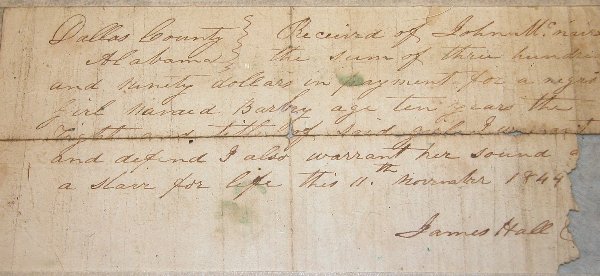 Dallas County } Received of John Mc
Alabama } the sum of three hund
and ninity dollars in payment for a negro
girl named Barbry age ten years the
right and title of said girl I warant
and defend I also warrant her sound
a slave for life this 11th November 1849
James Hall